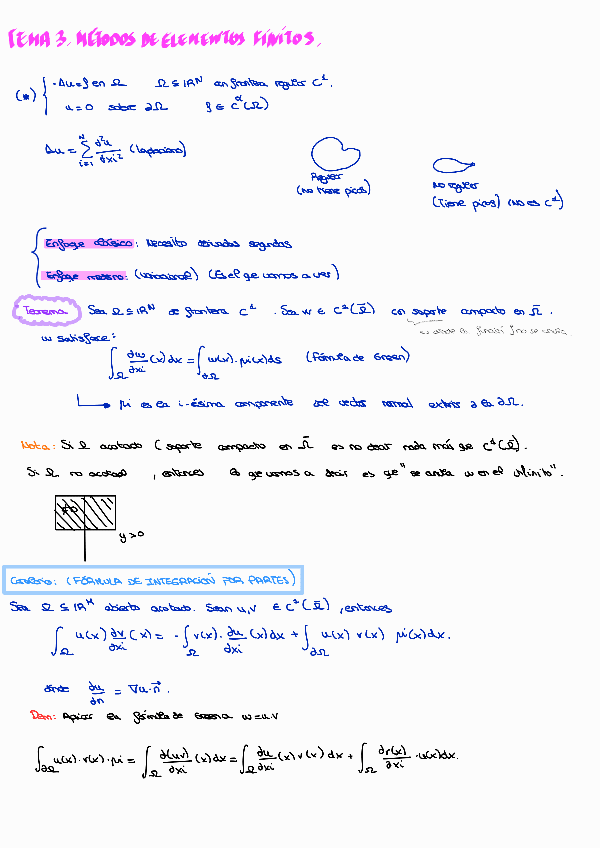 TEMA 3. MÉTODOS DE ELEMENTOS FINITOS.
(*) { -Δu = f en Ω   Ω ⊆ IR^N con frontera regular C^1.
u = 0 sobre ∂Ω   f ∈ C^α(Ω)
Δu = Σ_{i=1}^N ∂²u/∂xi² (Laplaciano)
Regular
(No tiene picos)
No regular
(Tiene picos) (No es C^1)
Enfoque clásico: Necesito derivadas segundas
Enfoque moderno: (variacional) (Es el que vamos a ver)
Teorema Sea Ω ⊆ IR^N de frontera C^1. Sea w ∈ C^1(Ω̄) con soporte compacto en Ω̄.
w satisface:
∫_Ω ∂w/∂xi (x) dx = ∫_∂Ω w(x)·μi(x) ds (Fórmula de Green)
↳ μi es la i-ésima componente del vector normal exterior a la ∂Ω.
Nota: Si Ω acotado (soporte compacto en Ω̄ es no decir nada más que C^1(Ω̄).
Si Ω no acotado, entonces lo que vamos a decir es que "se anula w en el infinito".
≠0
y>0
Corolario: (FÓRMULA DE INTEGRACIÓN POR PARTES)
Sea Ω ⊆ IR^N abierto acotado. Sean u,v ∈ C^1(Ω̄), entonces
∫_Ω u(x) ∂v/∂xi (x) = -∫_Ω v(x)· ∂u/∂xi (x) dx + ∫_∂Ω u(x) v(x) μi(x) dx.
donde ∂u/∂n = ∇u·n⃗.
Dem: Aplicar la fórmula de Green a w=u·v
∫_∂Ω u(x)·v(x)·μi = ∫_Ω ∂(uv)/∂xi (x) dx = ∫_Ω ∂u/∂xi (x) v(x) dx + ∫_Ω ∂v(x)/∂xi · u(x) dx.